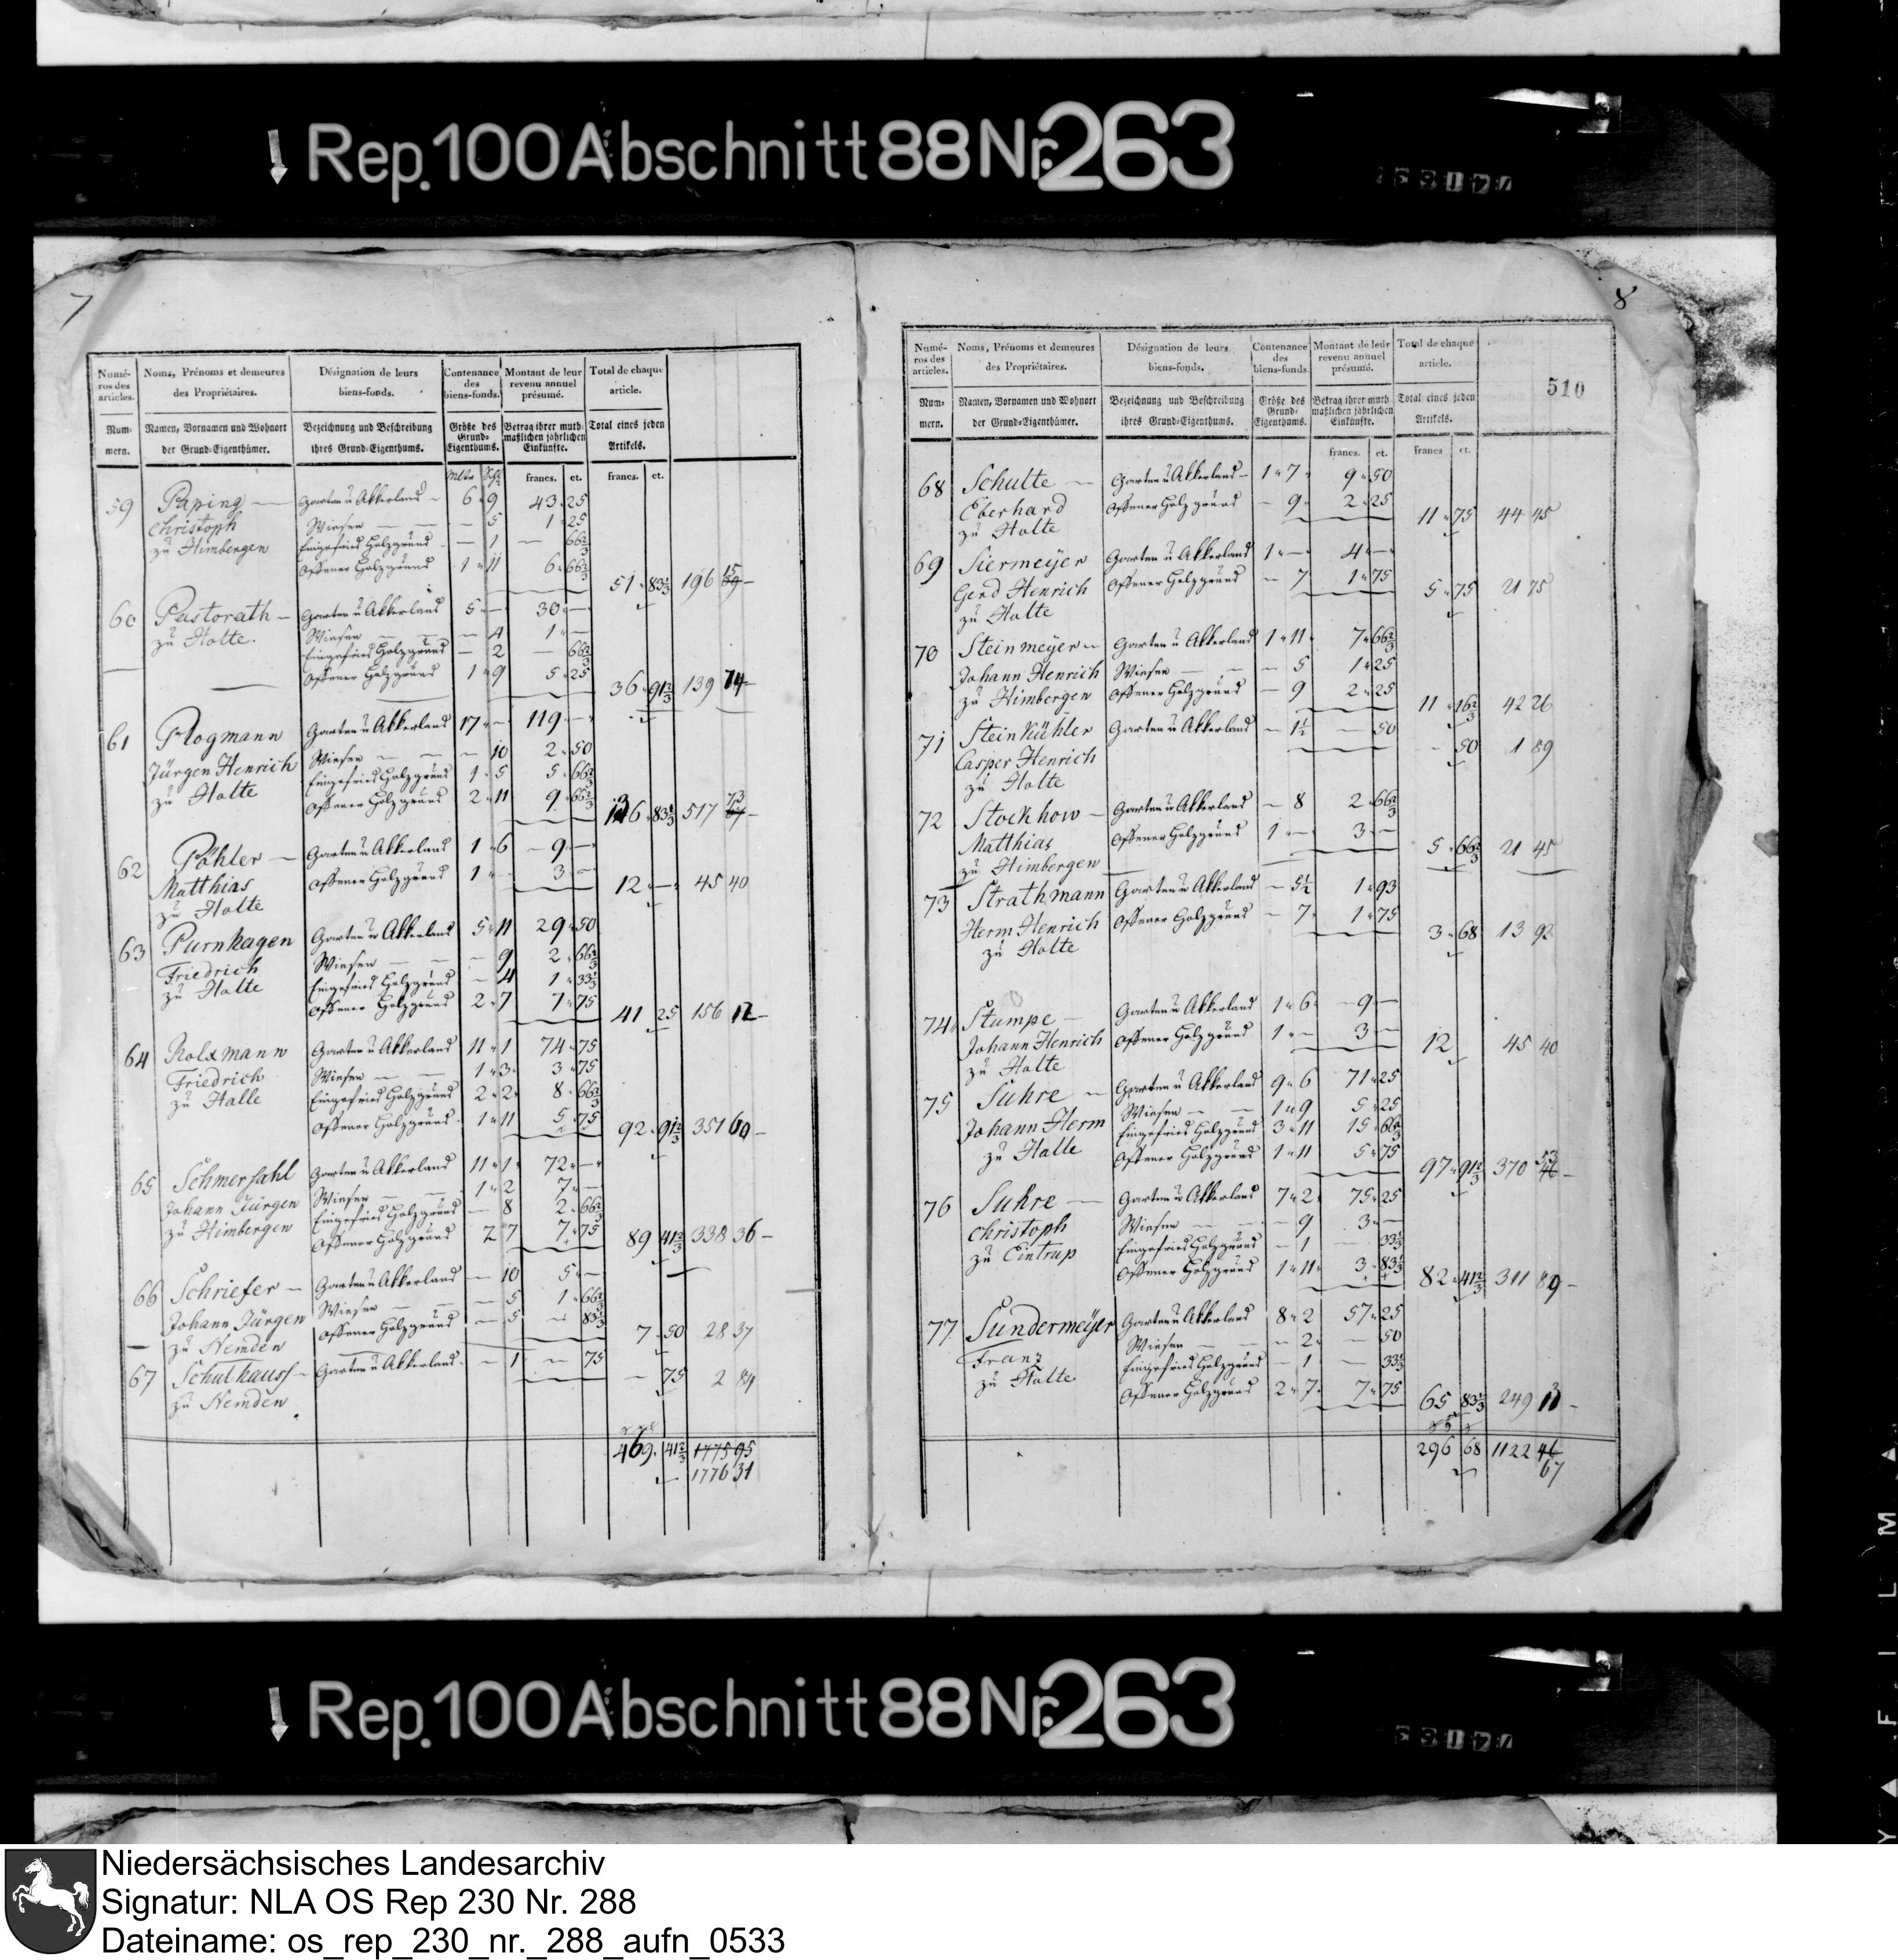 Rep. 100 Abschnitt 88 Nr. 263
7
Numéros des articles. Noms, Prénoms et demeures des Propriétaires. Désignation de leurs biens-fonds. Contenance des biens-fonds. Montant de leur revenu annuel présumé. Total de chaque article.
Nummern. Namen, Vornamen und Wohnort der Grund-Eigenthümer. Bezeichnung und Beschreibung ihres Grund-Eigenthums. Größe des Grund-Eigenthums. Betrag ihrer muthmaßlichen jährlichen Einkünfte. Total eines jeden Artikels.
francs. ct. francs. ct.
59 Paping Garten u Akkerland 6 9 43 25
Christoph Wiesen — 5 1 25
zu Himbergen Eingefried Holzgrund — 1 — 66 2/3
Offener Holzgrund 1 11 6 66 2/3
51 83 1/3 196 15
60 Pastorath Garten u Akkerland 5 — 30 —
zu Holte. Wiesen — 4 1 —
Eingefried Holzgrund — 2 — 66 2/3
Offener Holzgrund 1 9 5 25
36 91 2/3 139 74
61 Plogmann Garten u Akkerland 17 — 119 —
Jürgen Henrich Wiesen — 10 2 50
zu Holte Eingefried Holzgrund 1 5 5 66 2/3
Offener Holzgrund 2 11 9 66 2/3
136 83 1/3 517 73
62 Pöhler Garten u Akkerland 1 6 9 —
Matthias Offener Holzgrund 1 — 3 —
zu Holte 12 — 45 40
63 Purnhagen Garten u Akkerland 5 11 29 50
Friedrich Wiesen — 9 2 66 2/3
zu Holte Eingefried Holzgrund — 4 1 33 1/3
Offener Holzgrund 2 7 7 75
41 25 156 12
64 Rolxmann Garten u Akkerland 11 1 74 75
Friedrich Wiesen 1 3 3 75
zu Halle Eingefried Holzgrund 2 2 8 66 2/3
Offener Holzgrund 1 11 5 75
92 91 2/3 351 60
65 Schmersahl Garten u Akkerland 11 1 72 —
Johann Jürgen Wiesen 1 2 7 —
zu Himbergen Eingefried Holzgrund — 8 2 66 2/3
Offener Holzgrund 2 7 7 75
89 41 2/3 338 36
66 Schriefer Garten u Akkerland — 10 5 —
Johann Jürgen Wiesen — 5 1 66 2/3
zu Nemden Offener Holzgrund — 5 — 83 1/3
7 50 28 37
67 Schulhauss Garten u Akkerland — 1 — 75
zu Nemden — 75 2 84
469 41 2/3 1775 95
1776 31
8
510
Numéros des articles. Noms, Prénoms et demeures des Propriétaires. Désignation de leurs biens-fonds. Contenance des biens-fonds. Montant de leur revenu annuel présumé. Total de chaque article.
Nummern. Namen, Vornamen und Wohnort der Grund-Eigenthümer. Bezeichnung und Beschreibung ihres Grund-Eigenthums. Größe des Grund-Eigenthums. Betrag ihrer muthmaßlichen jährlichen Einkünfte. Total eines jeden Artikels.
francs. ct. francs ct.
68 Schulte Garten u Akkerland 1 7 9 50
Eberhard Offener Holzgrund — 9 2 25
zu Holte 11 75 44 45
69 Siermeyer Garten u Akkerland 1 — 4 —
Gerd Henrich Offener Holzgrund — 7 1 75
zu Holte 5 75 21 75
70 Steinmeyer Garten u Akkerland 1 11 7 66 2/3
Johann Henrich Wiesen — 5 1 25
zu Himbergen Offener Holzgrund — 9 2 25
11 16 2/3 42 26
71 Steinkühler Garten u Akkerland — 1 1/2 — 50
Casper Henrich — 50 1 89
zu Holte
72 Stockhow Garten u Akkerland — 8 2 66 2/3
Matthias Offener Holzgrund 1 — 3 —
zu Himbergen 5 66 2/3 21 45
73 Strathmann Garten u Akkerland — 5 1/2 1 93
Herm Henrich Offener Holzgrund — 7 1 75
zu Holte 3 68 13 92
74 Stumpe Garten u Akkerland 1 6 9 —
Johann Henrich Offener Holzgrund 1 — 3 —
zu Holte 12 45 40
75 Suhre Garten u Akkerland 9 6 71 25
Johann Herm Wiesen 1 9 5 25
zu Halle Eingefried Holzgrund 3 11 15 66 2/3
Offener Holzgrund 1 11 5 75
97 91 2/3 370 53
76 Suhre Garten u Akkerland 7 2 75 25
Christoph Wiesen — 9 3 —
zu Eintrup Eingefried Holzgrund — 1 — 33 1/3
Offener Holzgrund 1 11 3 83 1/3
82 41 2/3 311 89
77 Sundermeyer Garten u Akkerland 8 2 57 25
Franz Wiesen — 2 — 50
zu Holte Eingefried Holzgrund — 1 — 33 1/3
Offener Holzgrund 2 7 7 75
65 83 1/3 249 13
296 68 1122 46
67
Rep. 100 Abschnitt 88 Nr. 263
Niedersächsisches Landesarchiv
Signatur: NLA OS Rep 230 Nr. 288
Dateiname: os_rep_230_nr._288_aufn_0533